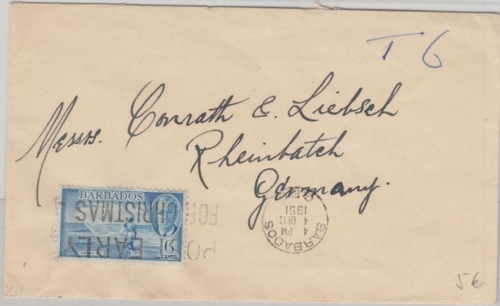 T 6
Messrs. Conrath & Liebsch
Rheinbatch
Germany.
BARBADOS
6
CENTS
POST EARLY
FOR CHRISTMAS
BARBADOS
4 PM
4 DEC
1951
5€